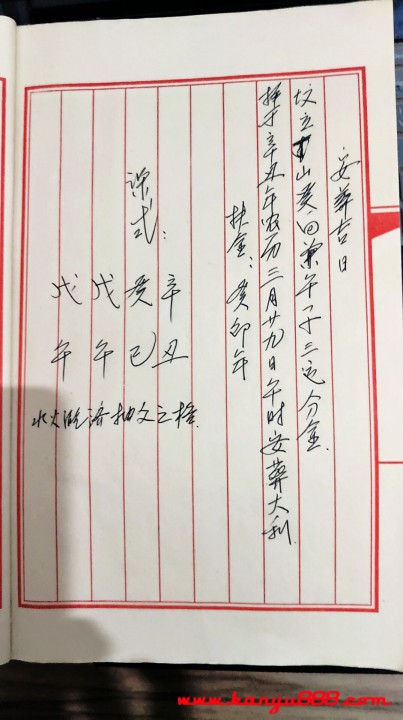 安葬吉日
坟立丁山癸向兼午子三七分金
择于辛丑年农历三月廿九日午时安葬大利
扶金：癸卯年
课式：
辛丑
癸巳
戊午
戊午
水火既济抽爻之格
www.kanyu888.com